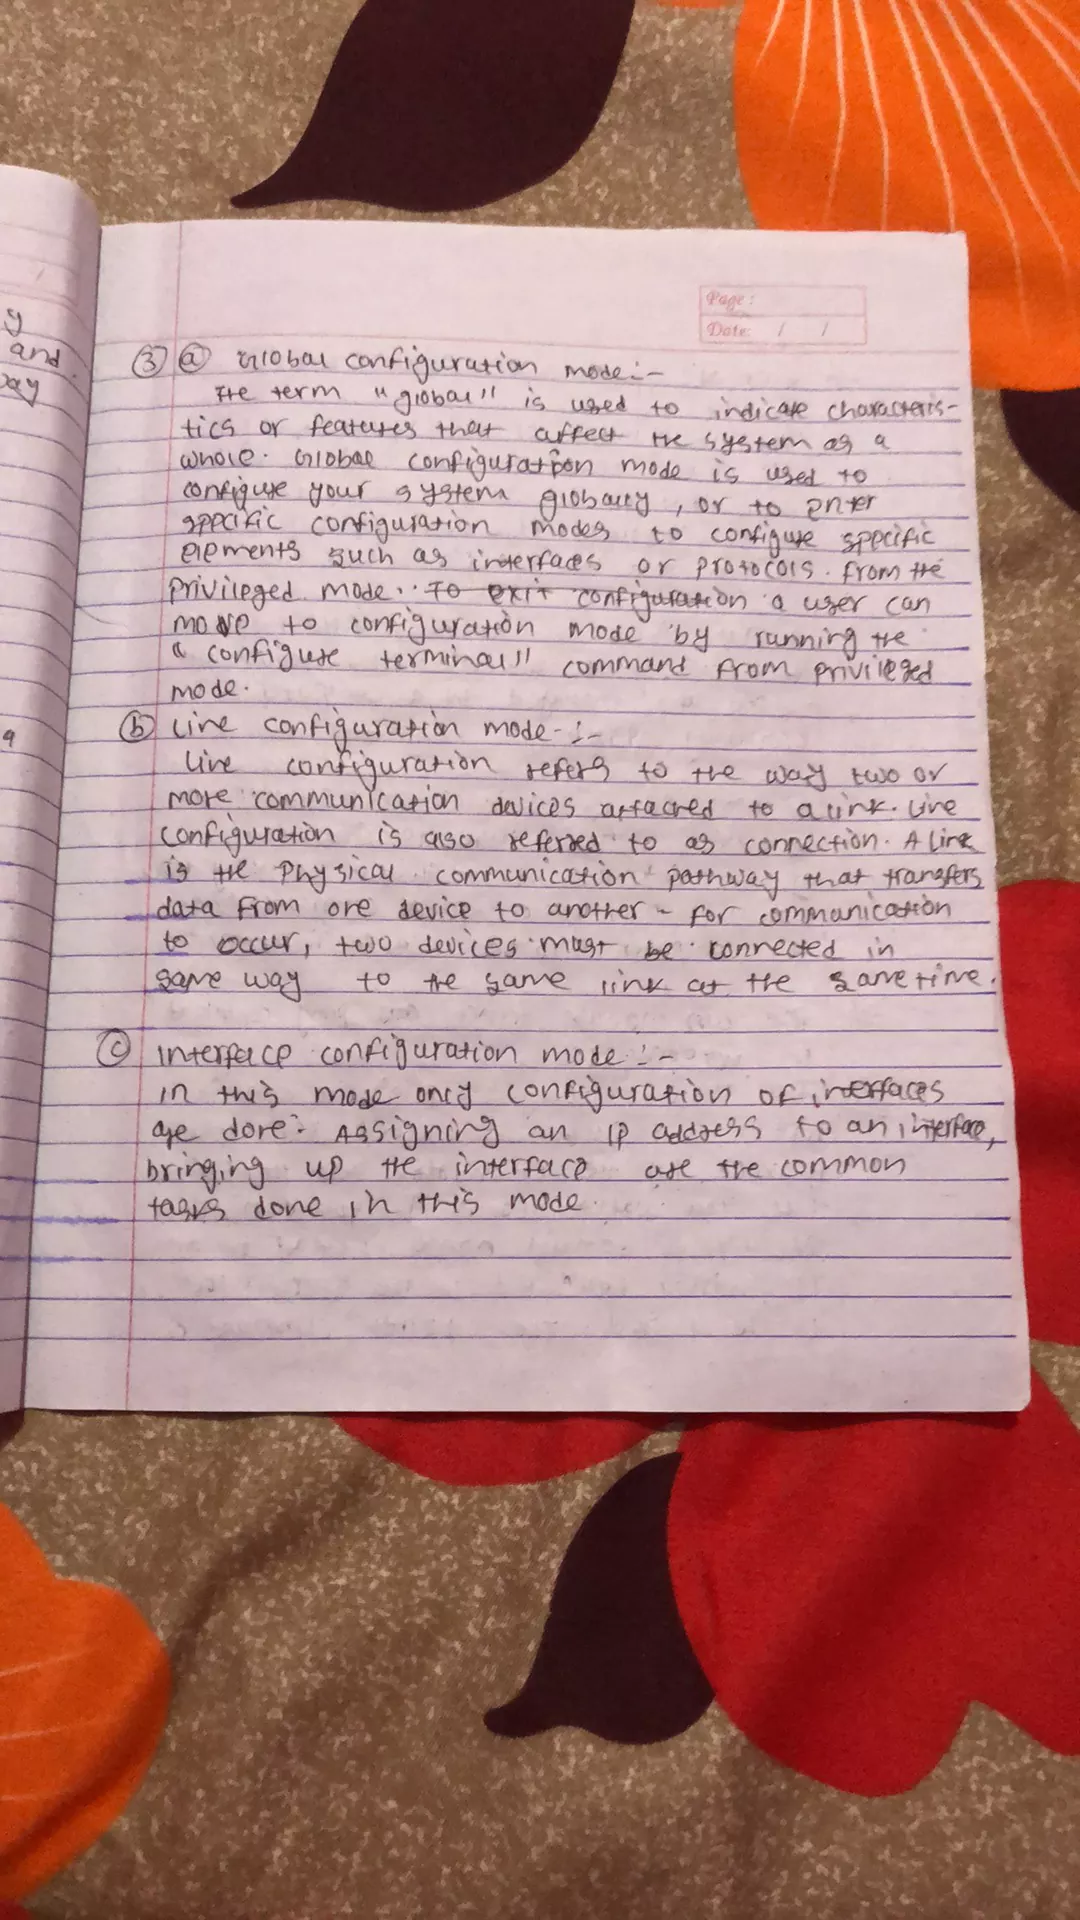 Page :
Date: / /
y
and
③ ⓐ Global configuration mode :-
The term "global" is used to indicate characteris-
tics or features that affect the system as a
whole. Global configuration mode is used to
configure your system globally, or to enter
specific configuration modes to configure specific
elements such as interfaces or protocols. From the
privileged mode. To exit configuration a user can
move to configuration mode by running the
"configure terminal" command from privileged
mode.
ⓑ Line configuration mode - :-
Line configuration refers to the way two or
more communication devices attached to a link. Line
configuration is also referred to as connection. A Link
is the physical communication pathway that transfers
data from one device to another - for communication
to occur, two devices must be connected in
same way to the same link at the same time.
ⓒ Interface configuration mode :-
In this mode only configuration of interfaces
are done. Assigning an IP address to an interface,
bringing up the interface are the common
tasks done in this mode.